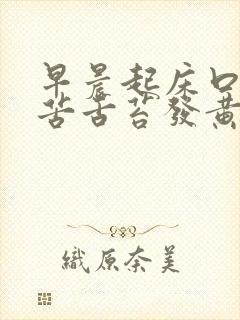 早晨起床口
苦舌苔發黃
織原奈美